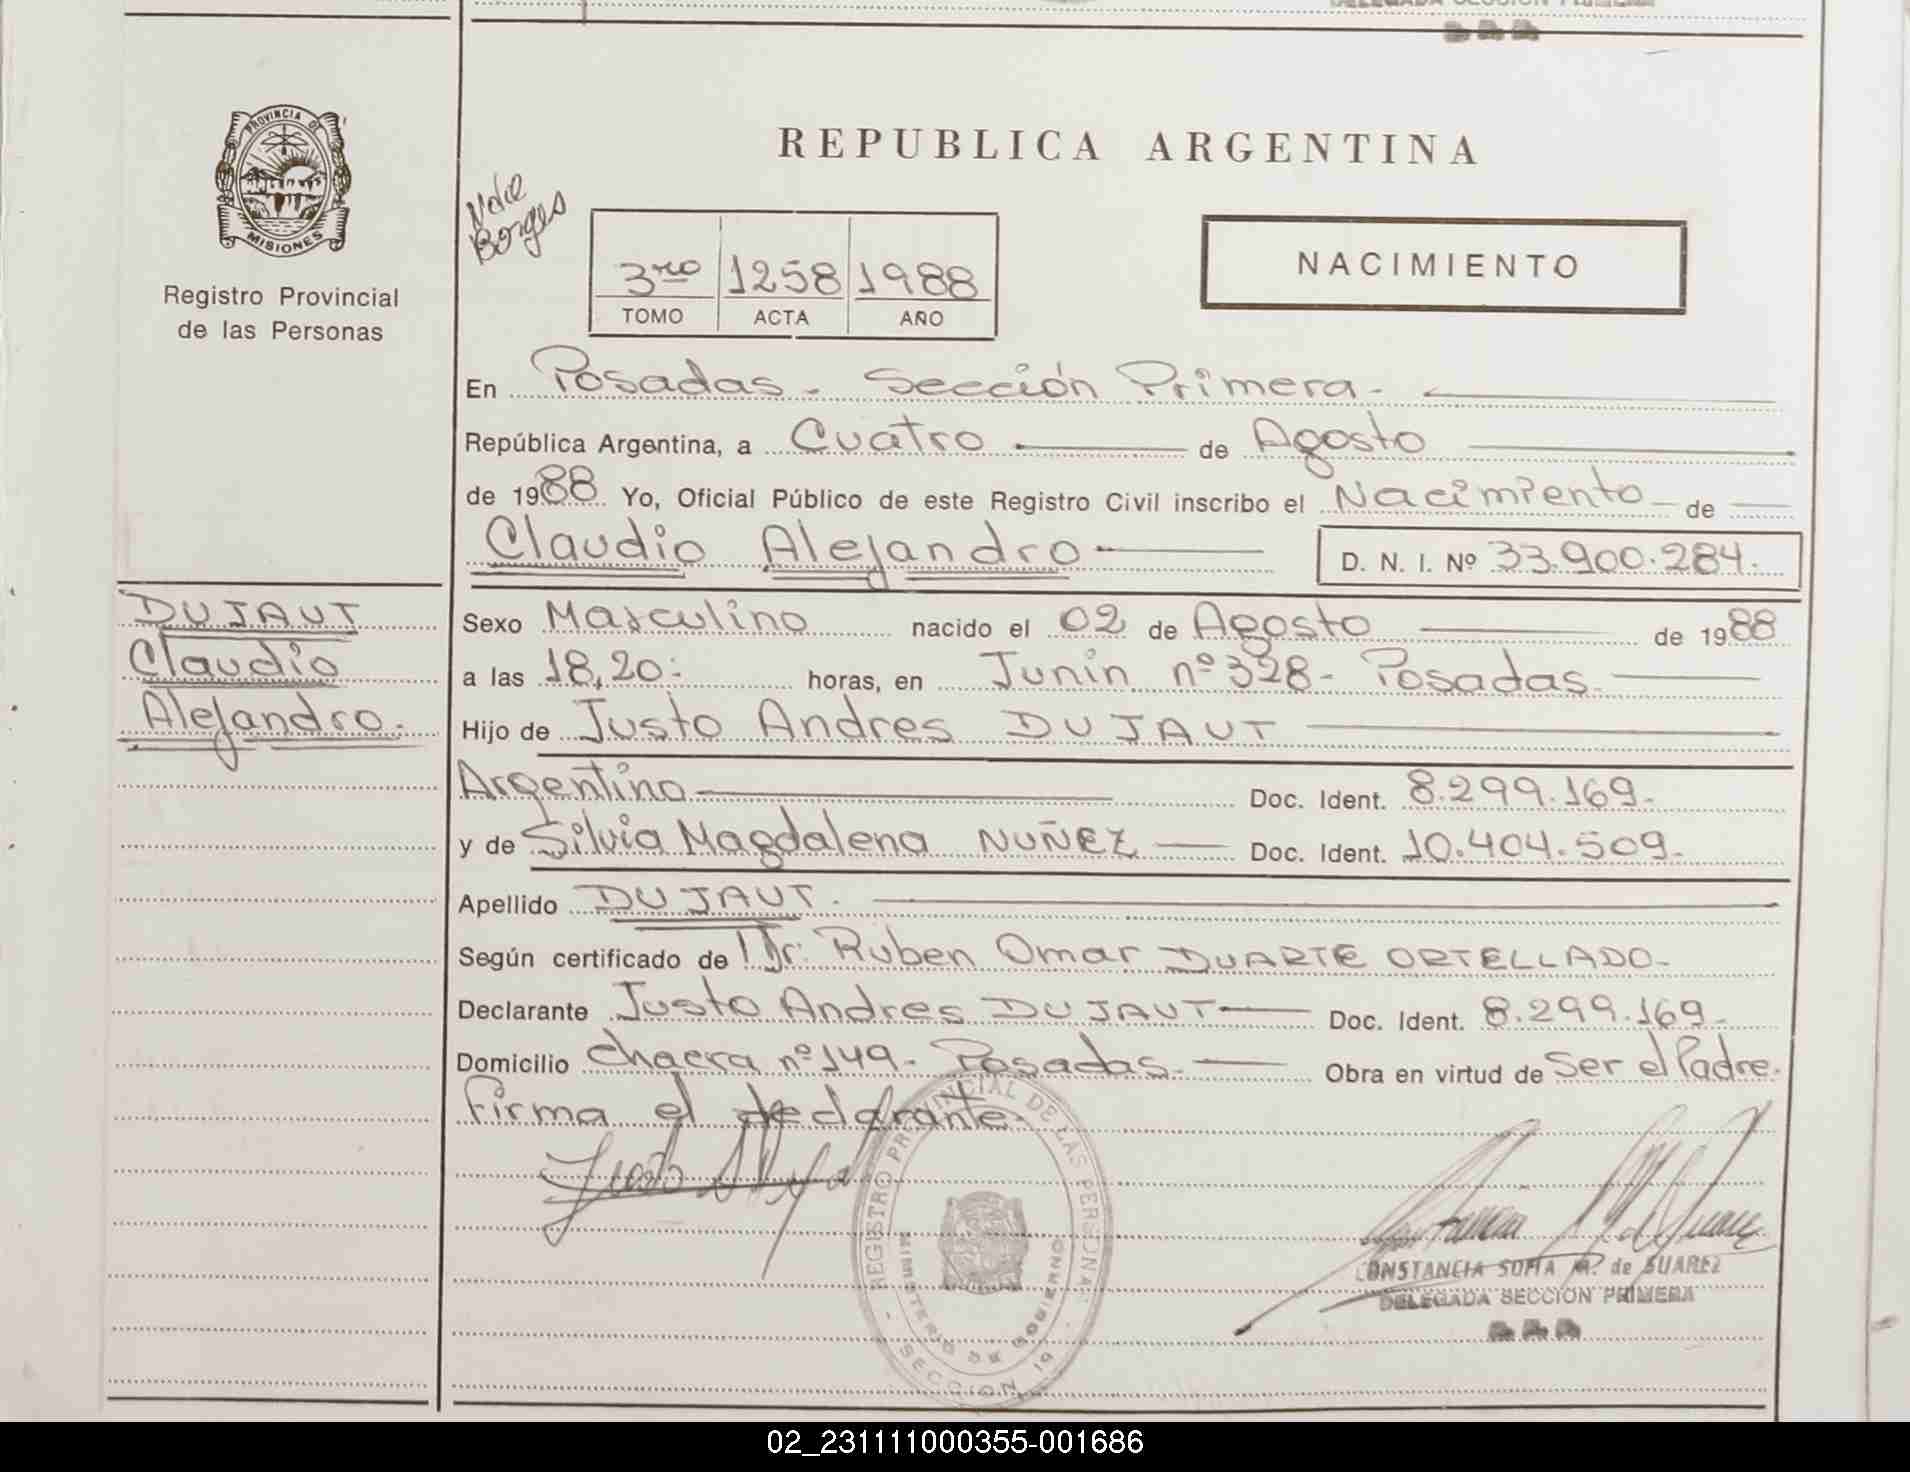 PROVINCIA DE
MISIONES
Registro Provincial
de las Personas
REPUBLICA ARGENTINA
Borges
3ro 1258 1988
TOMO ACTA AÑO
NACIMIENTO
En Posadas - Sección Primera -
República Argentina, a Cuatro de Agosto
de 1988 Yo, Oficial Público de este Registro Civil inscribo el Nacimiento de
Claudio Alejandro D. N. I. Nº 33.900.284.
DUJAUT
Claudio
Alejandro.
Sexo Masculino nacido el 02 de Agosto de 1988
a las 18,20: horas, en Junin nº 328- Posadas.
Hijo de Justo Andres DUJAUT
Argentino Doc. Ident. 8.299.169.
y de Silvia Magdalena NUÑEZ Doc. Ident. 10.404.509.
Apellido DUJAUT.
Según certificado de Dr. Ruben Omar DUARTE ORTELLADO-
Declarante Justo Andres DUJAUT Doc. Ident. 8.299.169.
Domicilio Chacra nº 149. Posadas. Obra en virtud de Ser el Padre.
Firma el declarante.
REGISTRO PROVINCIAL DE LAS PERSONAS
MINISTERIO DE GOBIERNO
SECCION 1a
CONSTANCIA SOFIA M. de SUAREZ
DELEGADA SECCION PRIMERA
02_231111000355-001686